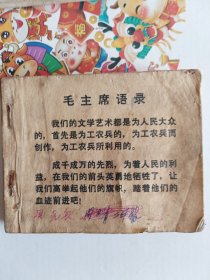 毛主席语录
我们的文学艺术都是为人民大众
的，首先是为工农兵的，为工农兵而
创作，为工农兵所利用的。
成千成万的先烈，为着人民的利
益，在我们的前头英勇地牺牲了，让
我们高举起他们的旗帜，踏着他们的
血迹前进吧！